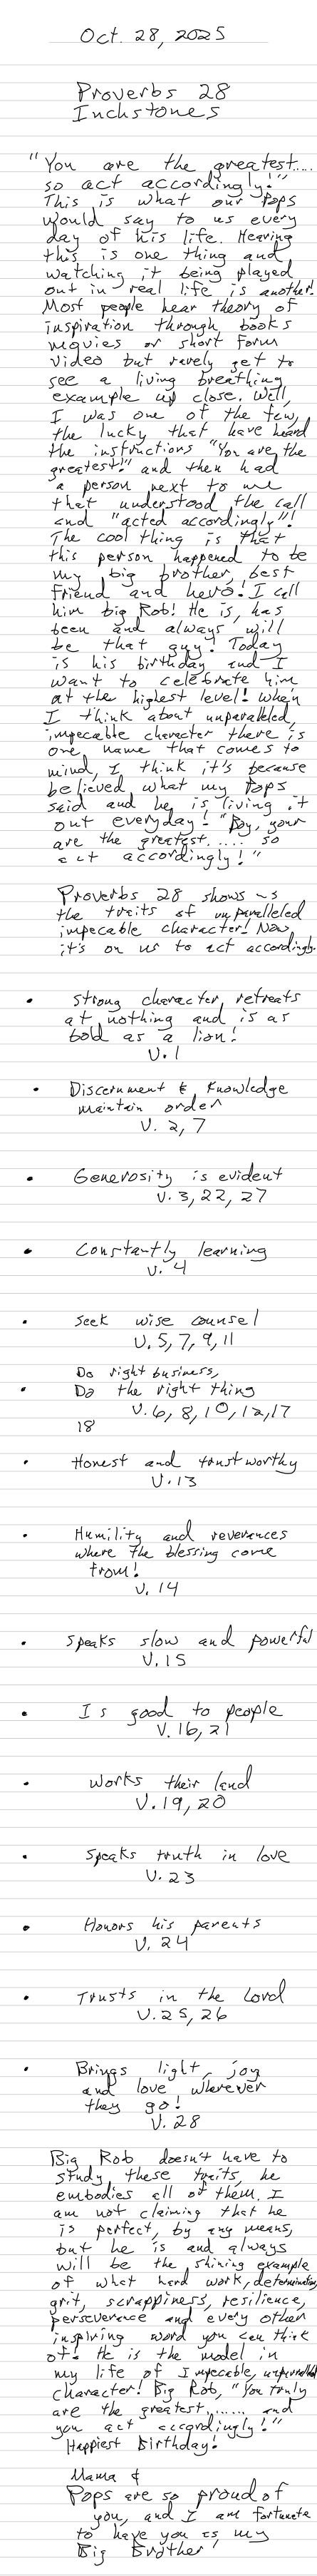 Oct. 28, 2025
Proverbs 28
Inchstones
"You are the greatest....
so act accordingly!"
This is what our Pops
would say to us every
day of his life. Hearing
this is one thing and
watching it being played
out in real life is another!
Most people hear theory of
inspiration through books
movies or short form
video but rarely get to
see a living breathing
example up close. Well,
I was one of the few,
the lucky that have heard
the instructions "You are the
greatest!" and then had
a person next to me
that understood the call
and "acted accordingly"!
The cool thing is that
this person happened to be
my big brother, best
friend and hero! I call
him big Rob! He is, has
been and always will
be that guy! Today
is his birthday and I
want to celebrate him
at the highest level! When
I think about unparalleled,
impecable character there is
one name that comes to
mind, I think it's because
he believed what my Pops
said and he is living it
out everyday! "Boy, your
are the greatest..... so
act accordingly!"
Proverbs 28 shows us
the traits of unparalleled
impecable character! Now
it's on us to act accordingly.
• Strong character retreats
at nothing and is as
bold as a lion!
V.1
• Discernment & Knowledge
maintain order
V. 2, 7
• Generosity is evident
V. 3, 22, 27
• Constantly learning
V. 4
• Seek wise counsel
V. 5, 7, 9, 11
Do right business,
• Do the right thing
V. 6, 8, 10, 12, 17
18
• Honest and trustworthy
V. 13
• Humility and reverences
where the blessing come
from!
V. 14
• Speaks slow and powerful
V. 15
• Is good to people
V. 16, 21
• Works their land
V. 19, 20
• Speaks truth in love
V. 23
• Honors his parents
V. 24
• Trusts in the Lord
V. 25, 26
• Brings light, joy
and love wherever
they go!
V. 28
Big Rob doesn't have to
study these traits, he
embodies all of them. I
am not claiming that he
is perfect, by any means,
but he is and always
will be the shining example
of what hard work, determination,
grit, scrappiness, resilience,
perseverence and every other
inspiring word you can think
of! He is the model in
my life of Impecable, unparalleled
character! Big Rob, "You truly
are the greatest....... and
you act accordingly!"
Happiest Birthday!
Mama &
Pops are so proud of
you, and I am fortunate
to have you as my
Big Brother,